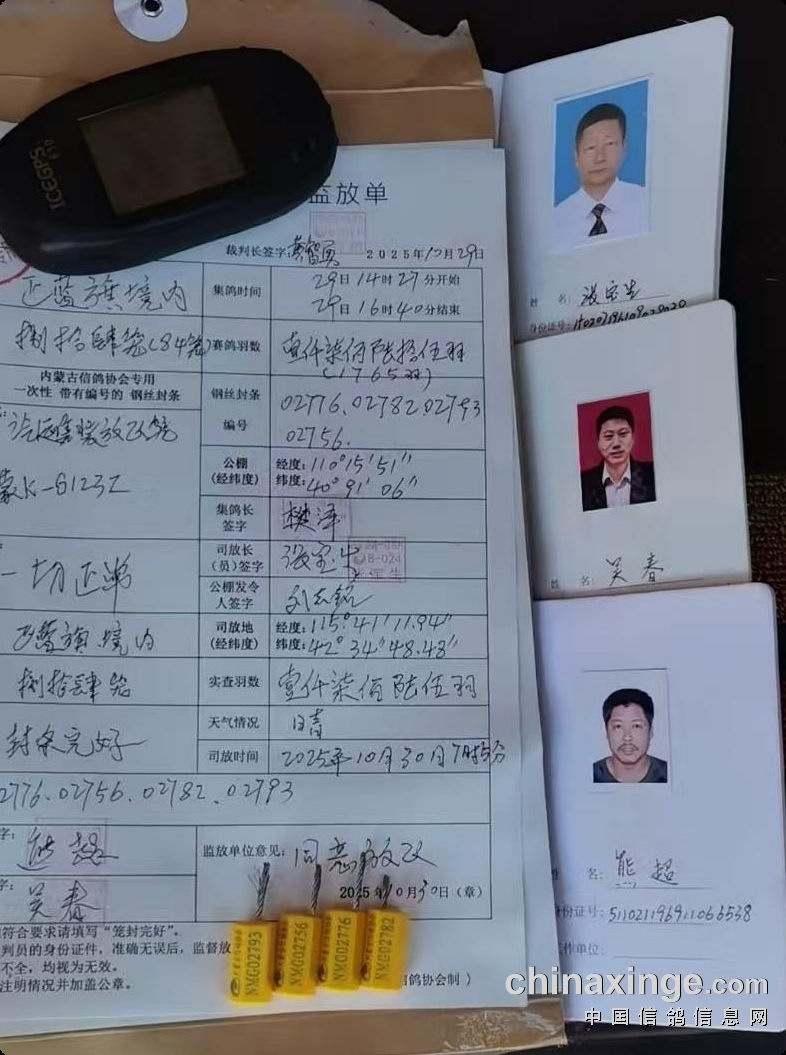 ICEGPS
监放单
裁判长签字: 2025年10月29日
正蓝旗境内
集鸽时间
29日14时27分开始
29日16时40分结束
捌拾肆笼(84笼)
赛鸽羽数
壹仟柒佰陆拾伍羽
(1765羽)
内蒙古信鸽协会专用
一次性 带有编号的 钢丝封条
钢丝封条
编号
02776.02782.02793
02756.
公棚
(经纬度)
经度:110°15′51″
纬度:40°91′06″
集鸽长
签字
樊泽
一切正常
司放长
(员)签字
张宝生
公棚发令
人签字
正蓝旗境内
司放地
(经纬度)
经度:115°41′11.94″
纬度:42°34′48.48″
捌拾肆笼
实查羽数
壹仟柒佰陆伍羽
封条完好
天气情况
司放时间
2025年10月30日7时5分
2776.02756.02782.02793
字:
熊超
字:
吴春
监放单位意见:同意放飞
2025年10月30日(章)
符合要求请填写“笼封完好”。
判员的身份证件，准确无误后，监督放
不全，均视为无效。
注明情况并加盖公章。
信鸽协会制）
NMG02793
NMG02756
NMG02776
NMG02782
姓 名:张宝生
身份证号:
姓 名:吴春
名:熊超
身份证号:511021196911066538
工作单位:
chinaxinge.com
中国信鸽信息网